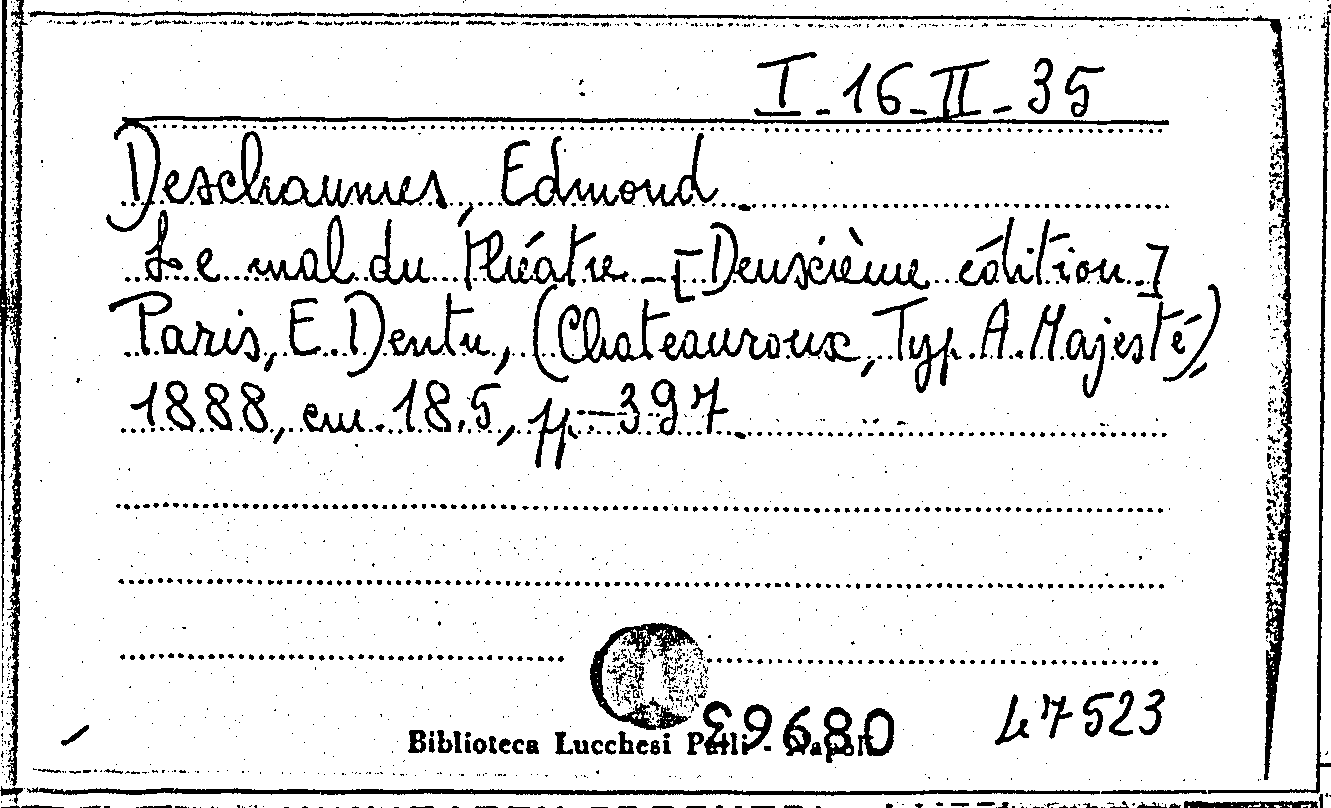 I-16-II-35
Deschaumes, Edmond.
Le mal du théâtre - [Deuxième édition]
Paris, E. Dentu, (Chateauroux, Typ. A. Majesté),
1888, cm. 18.5, pp. 397.
47523
Biblioteca Lucchesi Palli - Napoli